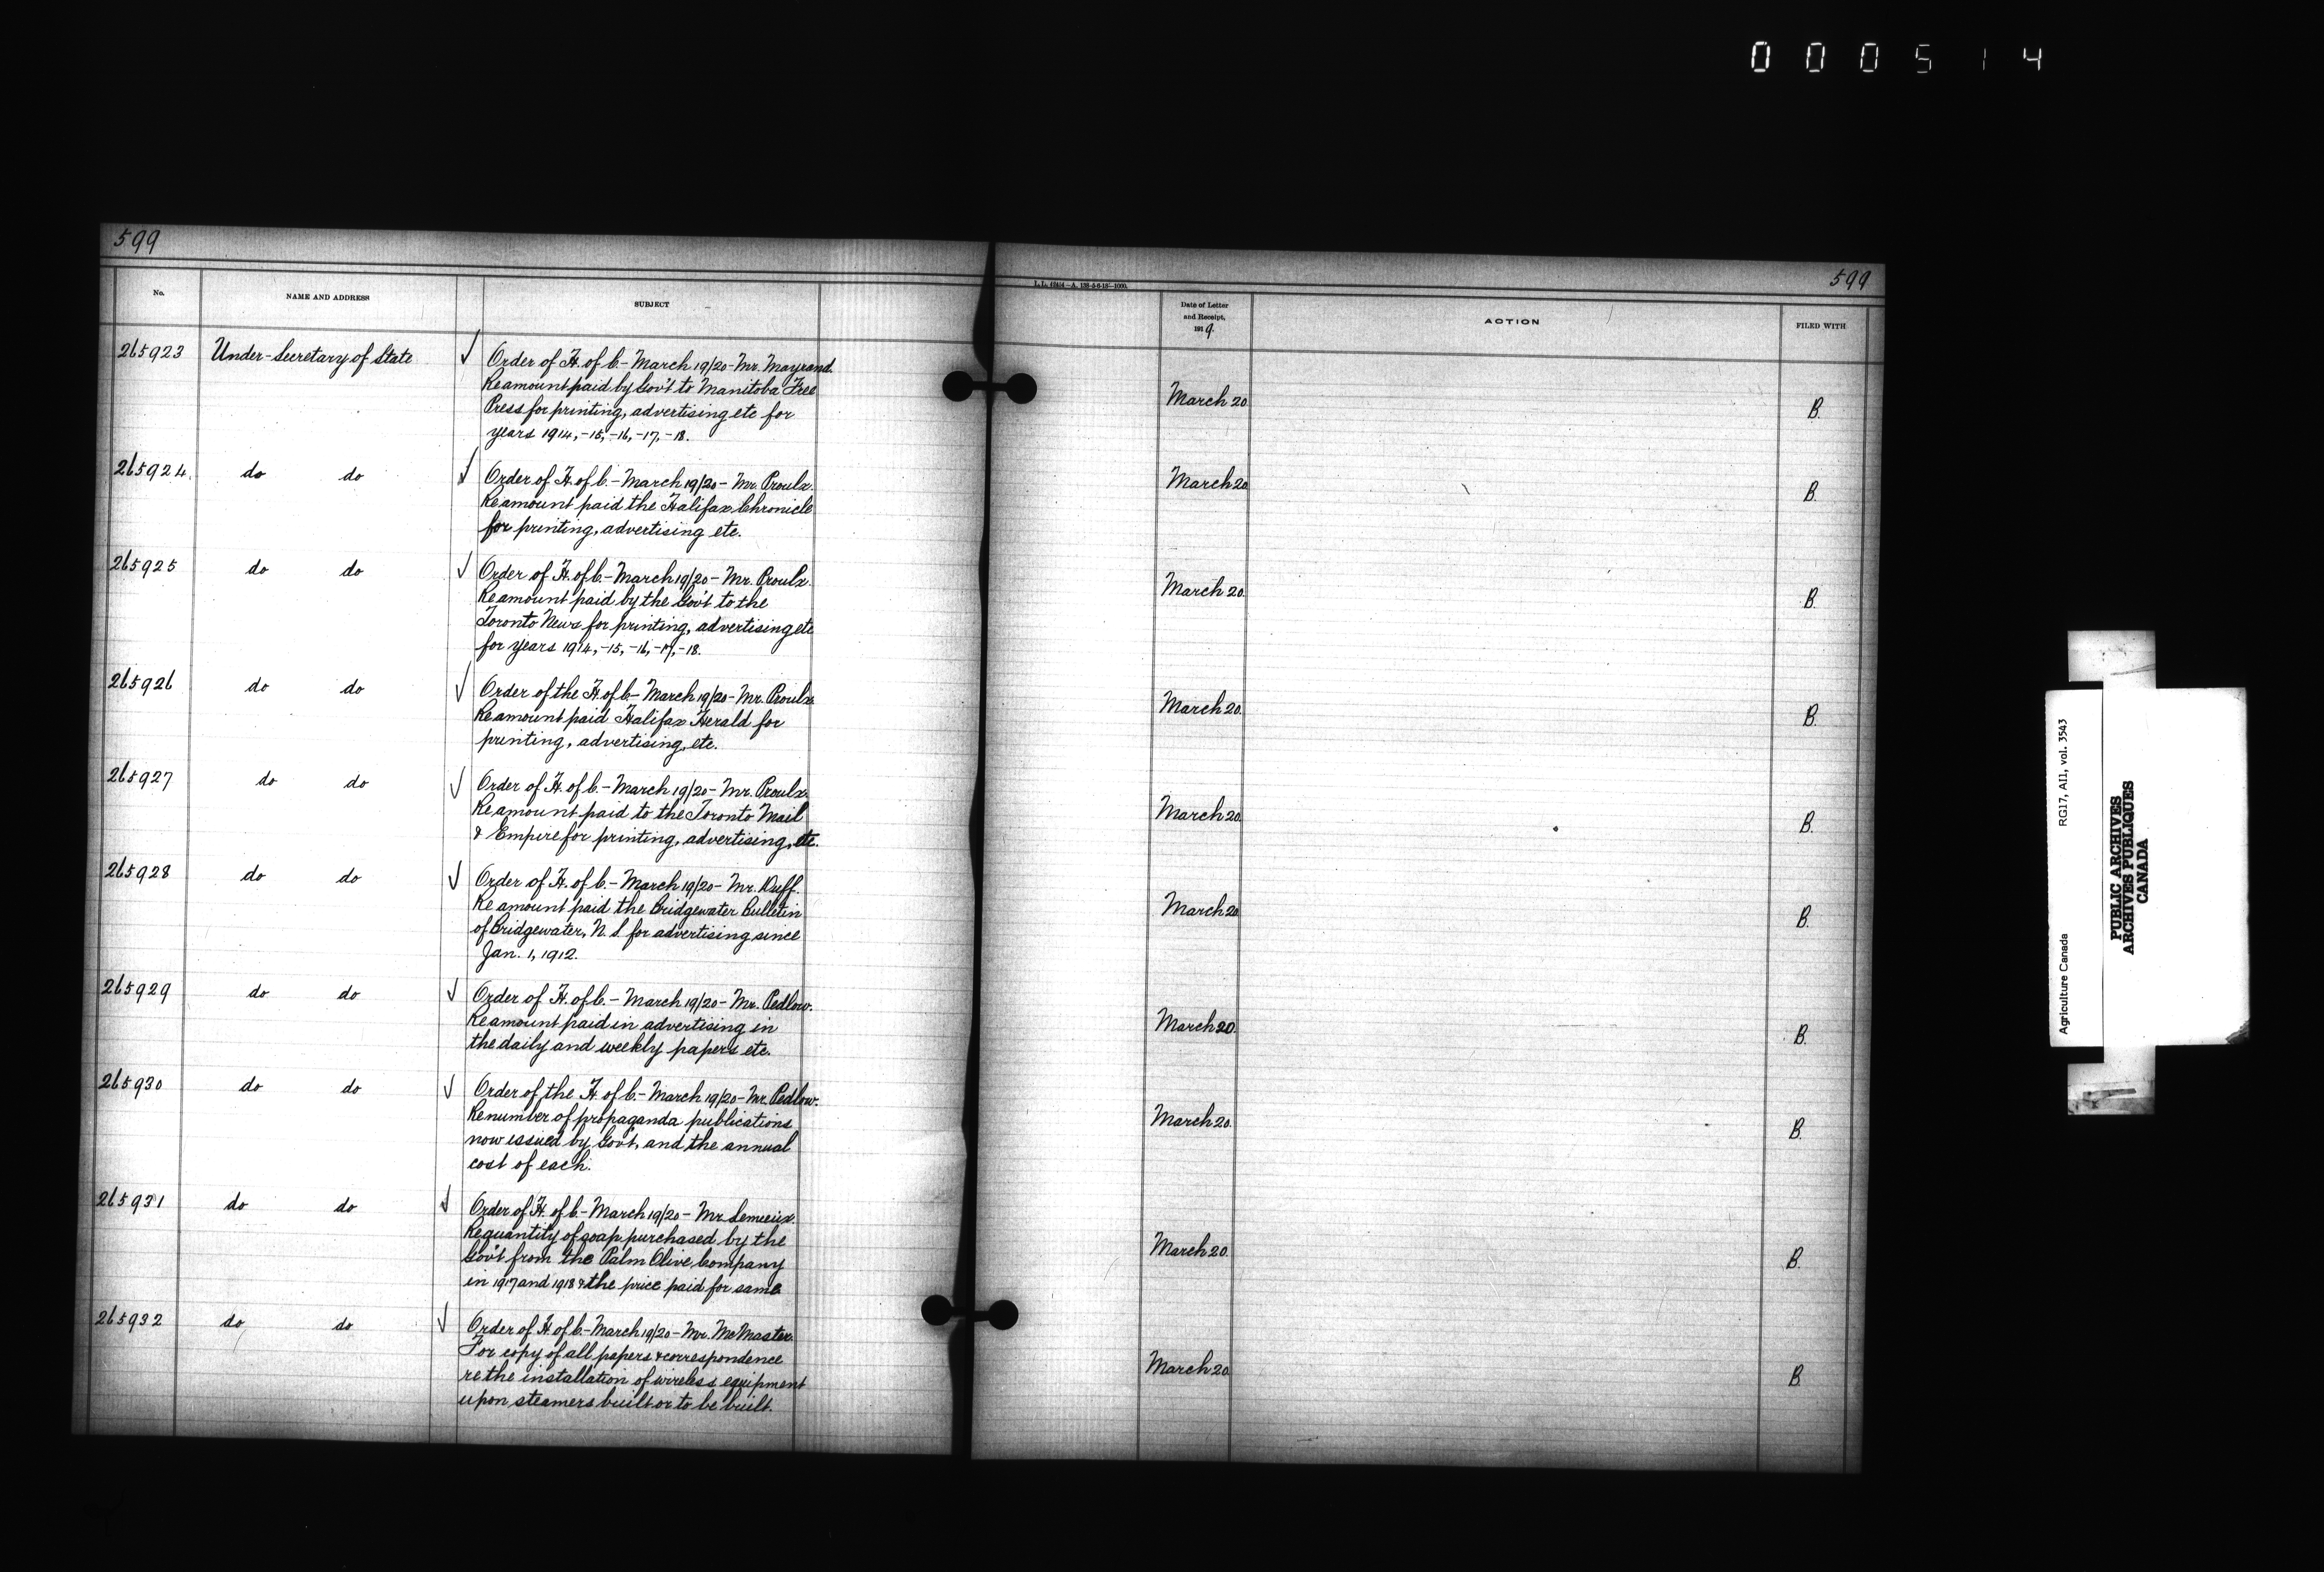 000514
599
599
No.
NAME AND ADDRESS
SUBJECT
L.L. 12414—A. 138-5-6-18—1000.
Date of Letter
and Receipt,
1919.
ACTION
FILED WITH
265923 Under-Secretary of State ✓ Order of H. of C. - March 19/20 - Mr. Mayrand.
Re amount paid by Gov't to Manitoba Free
Press for printing, advertising etc for
years 1914, -15, -16, -17, -18.
March 20. B.
265924. do do ✓ Order of H. of C. - March 19/20 - Mr. Proulx.
Re amount paid the Halifax Chronicle
for printing, advertising etc.
March 20 B.
265925 do do ✓ Order of H. of C. - March 19/20 - Mr. Proulx.
Re amount paid by the Gov't to the
Toronto News for printing, advertising etc
for years 1914, -15, -16, -17, -18.
March 20. B.
265926 do do ✓ Order of the H. of C. - March 19/20 - Mr. Proulx.
Re amount paid Halifax Herald for
printing, advertising, etc.
March 20. B.
265927 do do ✓ Order of H. of C. - March 19/20 - Mr. Proulx.
Re amount paid to the Toronto Mail
& Empire for printing, advertising, etc.
March 20. B.
265928 do do ✓ Order of H. of C. - March 19/20 - Mr. Duff.
Re amount paid the Bridgewater Bulletin
of Bridgewater, N. S. for advertising since
Jan. 1, 1912.
March 20. B.
265929 do do ✓ Order of H. of C. - March 19/20 - Mr. Pedlow.
Re amount paid in advertising in
the daily and weekly papers etc.
March 20. B.
265930 do do ✓ Order of the H. of C. - March 19/20 - Mr. Pedlow.
Re number of propaganda publications
now issued by Gov't, and the annual
cost of each.
March 20. B.
265931 do do ✓ Order of H. of C. - March 19/20 - Mr Lemieux.
Re quantity of soap purchased by the
Gov't from the Palm Olive Company
in 1917 and 1918 & the price paid for same
March 20. B.
265932 do do ✓ Order of H. of C. - March 19/20 - Mr. McMaster.
For copy of all papers & correspondence
re the installation of wireless equipment
upon steamers built or to be built.
March 20. B.
Agriculture Canada RG17, AII1, vol. 3543
PUBLIC ARCHIVES
ARCHIVES PUBLIQUES
CANADA